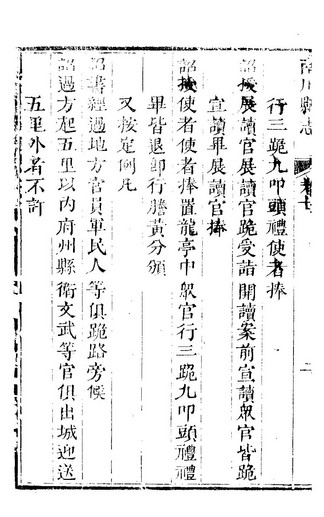 南川縣志
卷七
二
行三跪九叩頭禮使者捧
詔授展讀官展讀官跪受詣開讀案前宣讀眾官皆跪
宣讀畢展讀官捧
詔授使者使者捧置龍亭中眾官行三跪九叩頭禮禮
畢皆退即行謄黃分頒
又按定例凡
詔書經過地方官員軍民人等俱跪路旁候
詔過方起五里以内府州縣衛文武等官俱出城迎送
五里外者不許